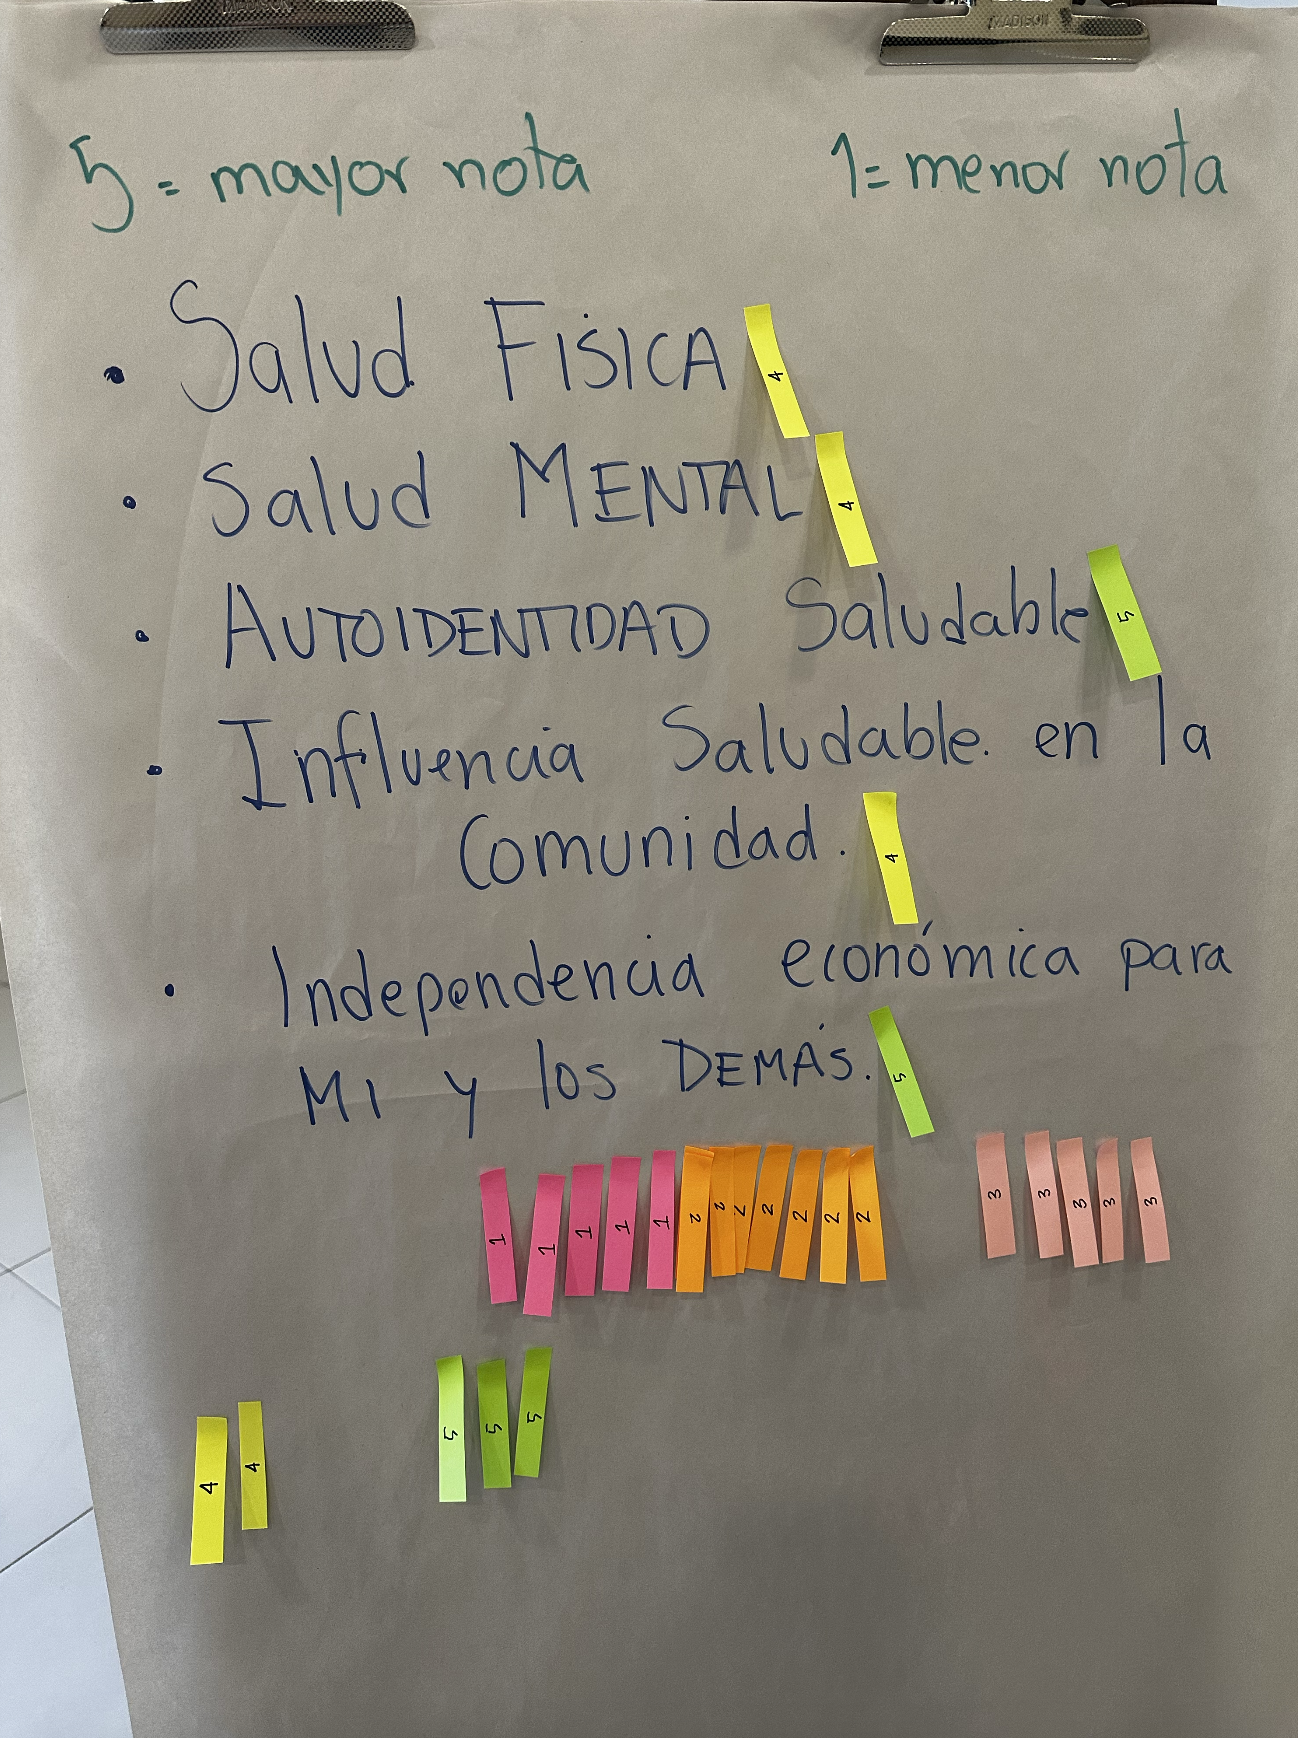 MADISON
MADISON
5 = mayor nota
1 = menor nota
• Salud FÍSICA
4
• Salud MENTAL
4
• AUTOIDENTIDAD Saludable
5
• Influencia Saludable. en la
Comunidad.
4
• Independencia económica para
MI y los DEMÁS.
5
1 1 1 1 1 2 2 2 2 2 2 2
3 3 3 3 3
5 5 5
4 4